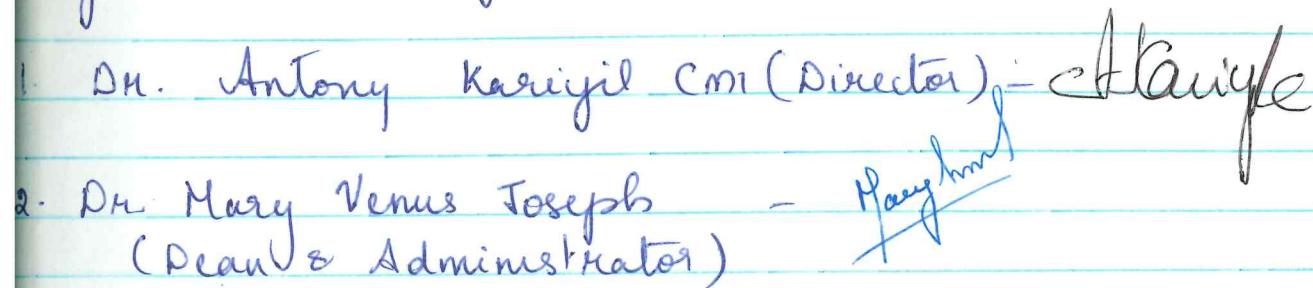 1. Dr. Antony Kariyil CMI (Director) -
2. Dr Mary Venus Joseph -
(Dean & Administrator)